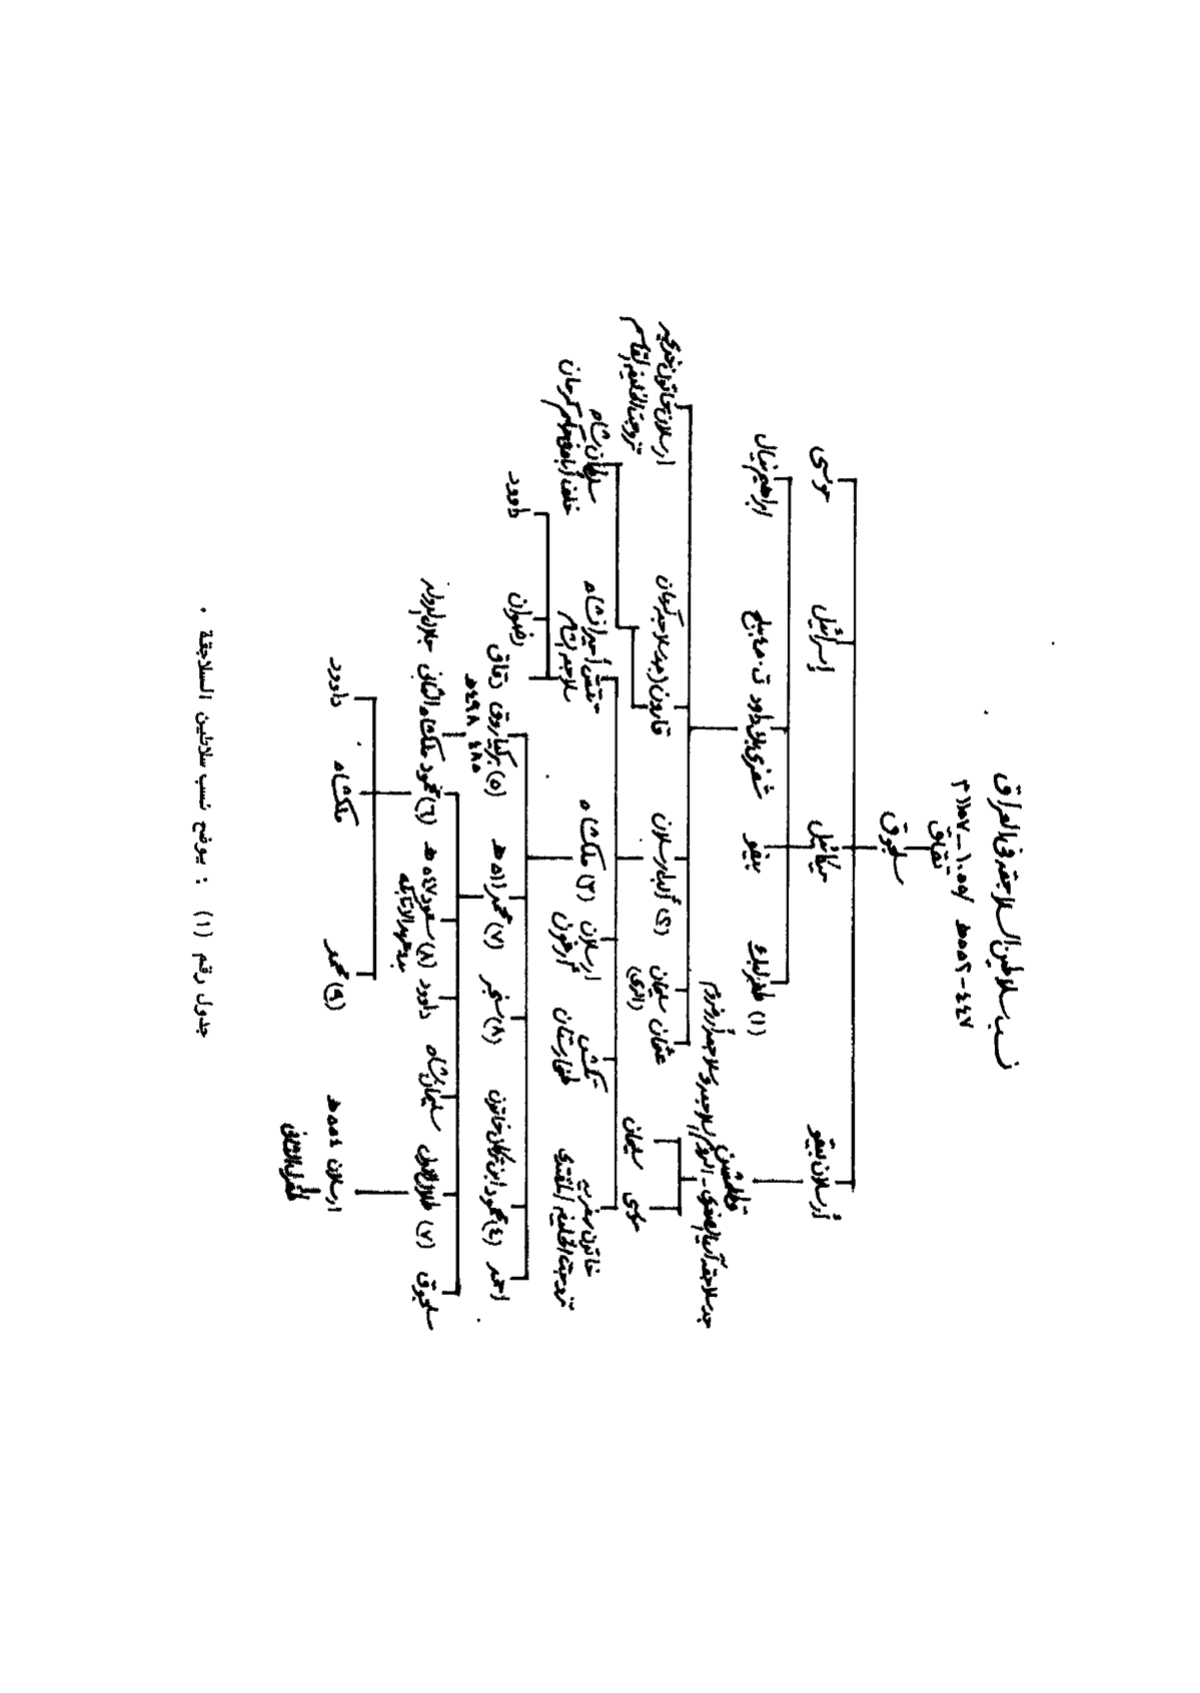 نسب سلاطين السلاجقة في العراق
٤٤٧ - ٥٥٢ هـ / ١٠٥٥ - ١١٥٧ م
تقاق
سلجوق
أرسلان بيغو
ميكائيل
إسرائيل
موسى
(١) طغرلبك
بيغو
شغري بك داود ت ٤٥٠ بلخ
ابراهيم نيال
قطلمش
جد سلاجقة آسيا الصغرى - الروم
موسى
سليمان
عثمان
سليمان
(الري)
(٢) ألب أرسلان
قارون (جد سلاجقة كرمان
ارسلان خاتون خديجة
تزوجت الخليفة القائم
سلطان شاه
خاتون سفرية
تزوجت الخليفة المقتدي
تكش
طخارستان
ارسلان
أرغون
(٣) ملكشاه
تتش أمير انشاه
سلاجقة الشام
احمد
(٤) محمود ابن تركان خاتون
(٨) سنجر
(٧) محمد ٥١١ هـ
(٥) بركياروق
٤٨٥
٤٩٨ هـ
دقاق
رضوان
داوود
سلجوق
(٧) طغرل الاول
سليمان شاه
داوود
(٨) مسعود ٥٤٧ هـ
بدء عهد الاتابكة
(٦) محمود
ملكشاه الثاني
ارسلان ٥٥٤ هـ
طغرل الثاني
(٩) محمد
ملكشاه
داوود
جدول رقم (١) : يوضح نسب سلاطين السلاجقة .